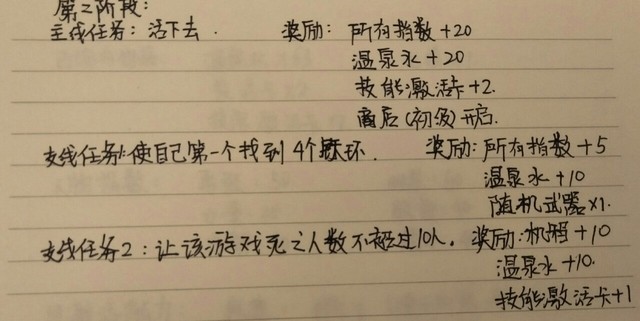 第二阶段:
主线任务: 活下去. 奖励: 所有指数+20
温泉水+20
技能激活卡+2.
商店(初级)开启.
支线任务1:使自己第一个找到4个环. 奖励:所有指数+5
温泉水+10
随机武器×1.
支线任务2:让该游戏死亡人数不超过10人. 奖励:机智+10
温泉水+10.
技能激活卡+1